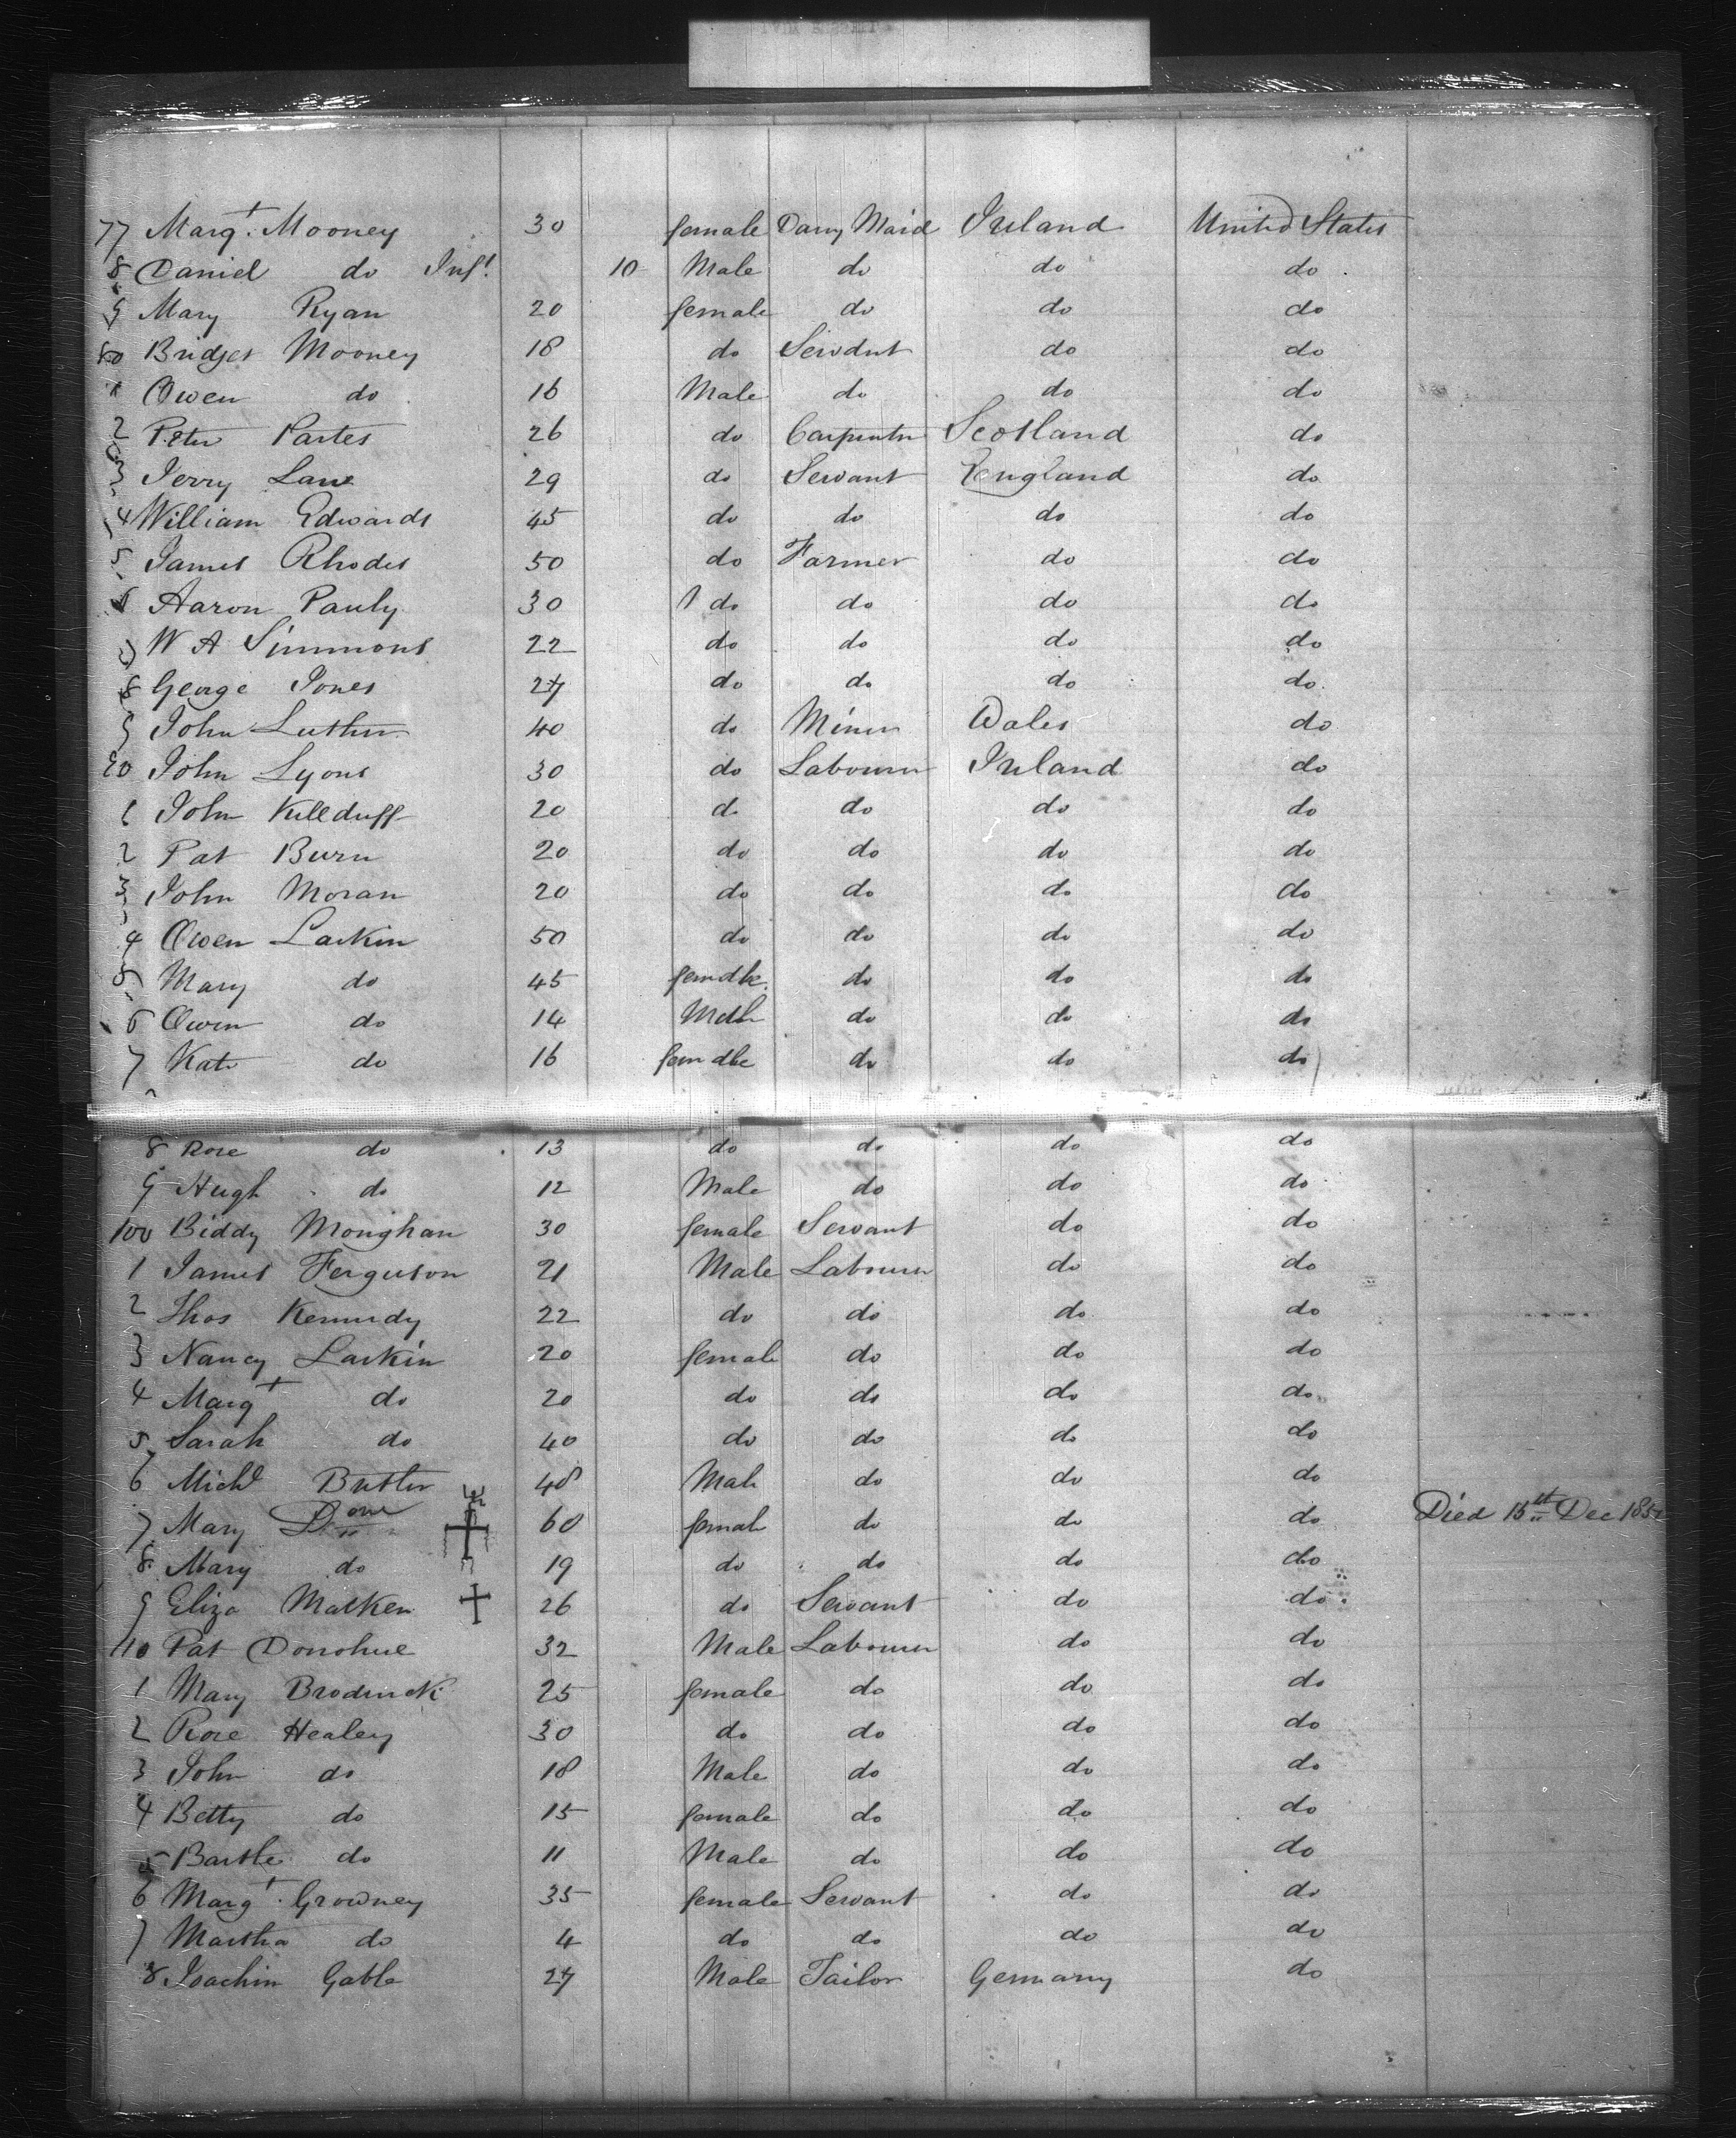 77 Margt. Mooney 30 female Dairy Maid Ireland United States
8 Daniel do Inft. 10 Male do do do
9 Mary Ryan 20 female do do do
80 Bridget Mooney 18 do Servant do do
1 Owen do 16 Male do do do
2 Peter Partes 26 do Carpenter Scotland do
3 Jerry Lane 29 do Servant England do
4 William Edwards 45 do do do do
5 James Rhodes 50 do Farmer do do
6 Aaron Pauly 30 do do do do
7 W A Simmons 22 do do do do
8 George Jones 27 do do do do
9 John Luther 40 do Miner Wales do
90 John Lyons 30 do Labourer Ireland do
1 John Killduff 20 d do do do
2 Pat Burn 20 do do do do
3 John Moran 20 do do do do
4 Owen Larkin 50 do do do do
5 Mary do 45 female do do do
6 Owen do 14 Male do do do
7 Kate do 16 female do do do
8 Rose do 13 do do do do
9 Hugh do 12 Male do do do
100 Biddy Monghan 30 female Servant do do
1 James Ferguson 21 Male Labourer do do
2 Thos Kennedy 22 do do do do
3 Nancy Larkin 20 female do do do
4 Margt do 20 do do do do
5 Sarah do 40 do do do do
6 Michl Butler 48 Male do do do
7 Mary 60 female do do do Died 15th Dec 185
8 Mary do 19 do do do do
9 Eliza Matken 26 do Servant do do
110 Pat Donohue 32 Male Labourer do do
1 Mary Broderick 25 female do do do
2 Rose Healey 30 do do do do
3 John do 18 Male do do do
4 Betty do 15 female do do do
5 Bartle do 11 Male do do do
6 Margt. Growney 35 female Servant do do
7 Martha do 4 do do do do
8 Joachim Gable 27 Male Tailor Germany do